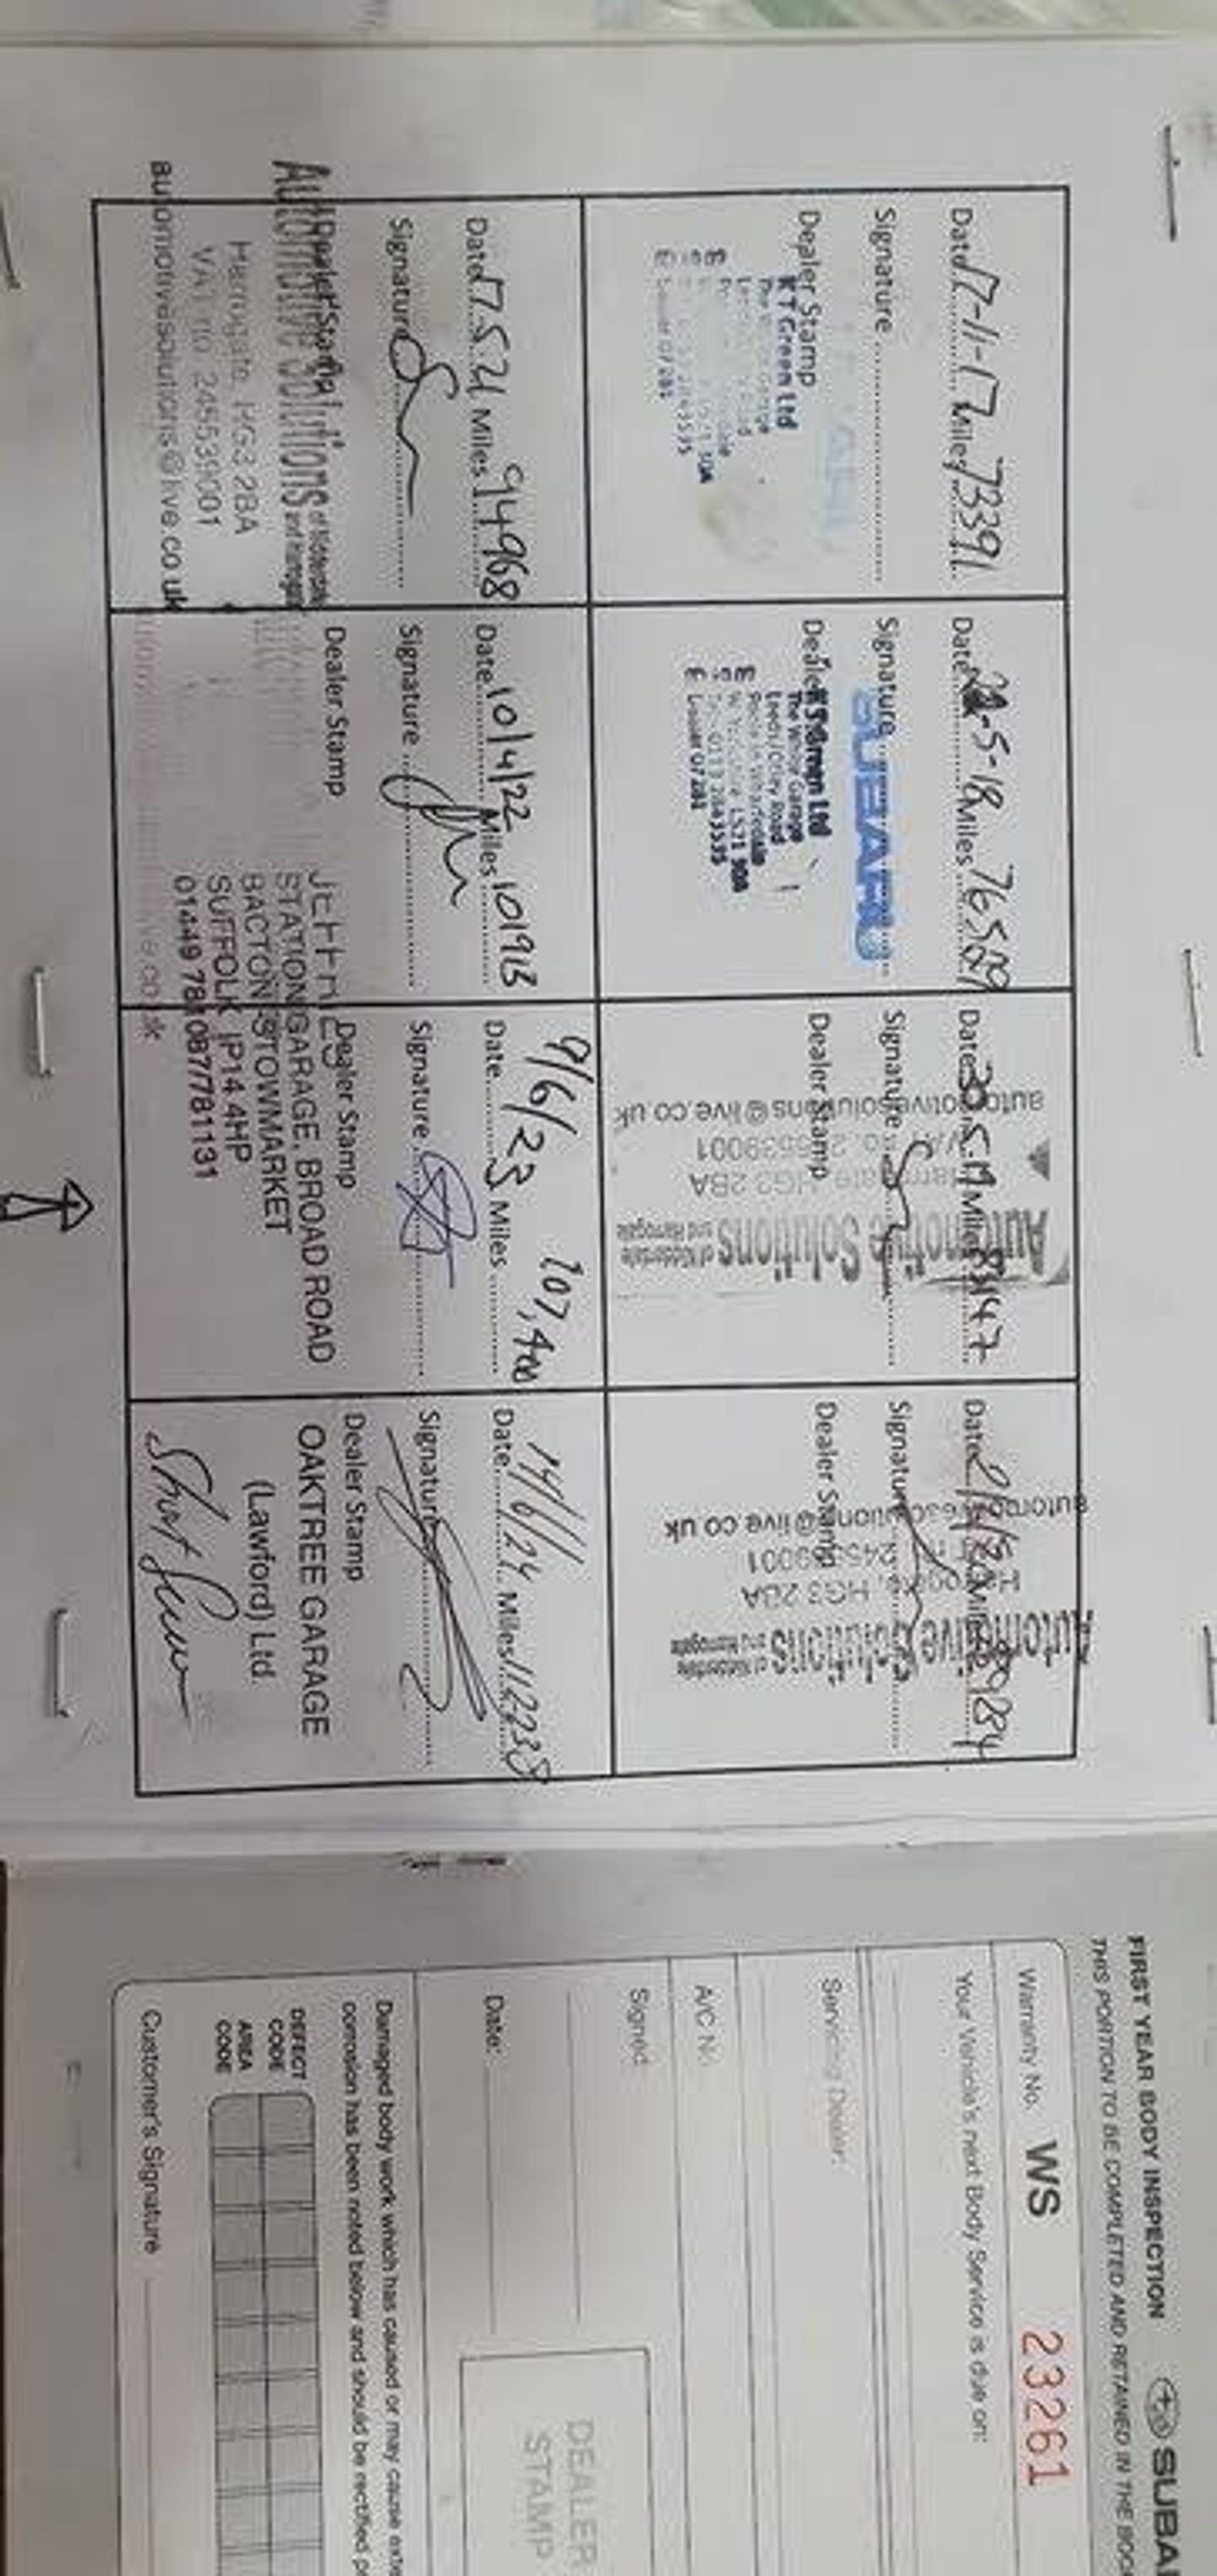 Date 17-11-17 Miles 73391
Signature
Dealer Stamp
K T Green Ltd
Date -5-18 Miles 76509
Signature
SUBARU
Dealer
Green Ltd
The White Garage
Leeds / Otley Road
LS21
0113 2843535
Date 30.5.19 Miles 83147
Signature
Dealer Stamp
Automotive Solutions
of Nidderdale
and Harrogate
HG3 2BA
automotivesolutions@live.co.uk
Date Miles 89284
Signature
Dealer Stamp
Automotive Solutions
of Nidderdale
and Harrogate
Harrogate, HG3 2BA
live.co.uk
Date 17.5.21 Miles 94968
Signature
Dealer Stamp
Automotive Solutions
of Nidderdale
and Harrogate
Harrogate, HG3 2BA
VAT no. 245539001
automotivesolutions@live.co.uk
Date 10/4/22 Miles 101913
Signature
Dealer Stamp
Date 9/6/23 Miles 107,400
Signature
Dealer Stamp
STATION GARAGE, BROAD ROAD
BACTON STOWMARKET
SUFFOLK IP14 4HP
01449 781087/781131
Date 14/6/24 Miles 112238
Signature
Dealer Stamp
OAKTREE GARAGE
(Lawford) Ltd.
FIRST YEAR BODY INSPECTION
SUBA
THIS PORTION TO BE COMPLETED AND RETAINED IN THE BOO
Warranty No. WS 23261
Your Vehicle's next Body Service is due on:
Servicing Dealer:
A/C No.
Signed
Date:
DEALER
STAMP
Damaged body work which has caused or may cause exte
corrosion has been noted below and should be rectified
DEFECT
CODE
AREA
CODE
Customer's Signature